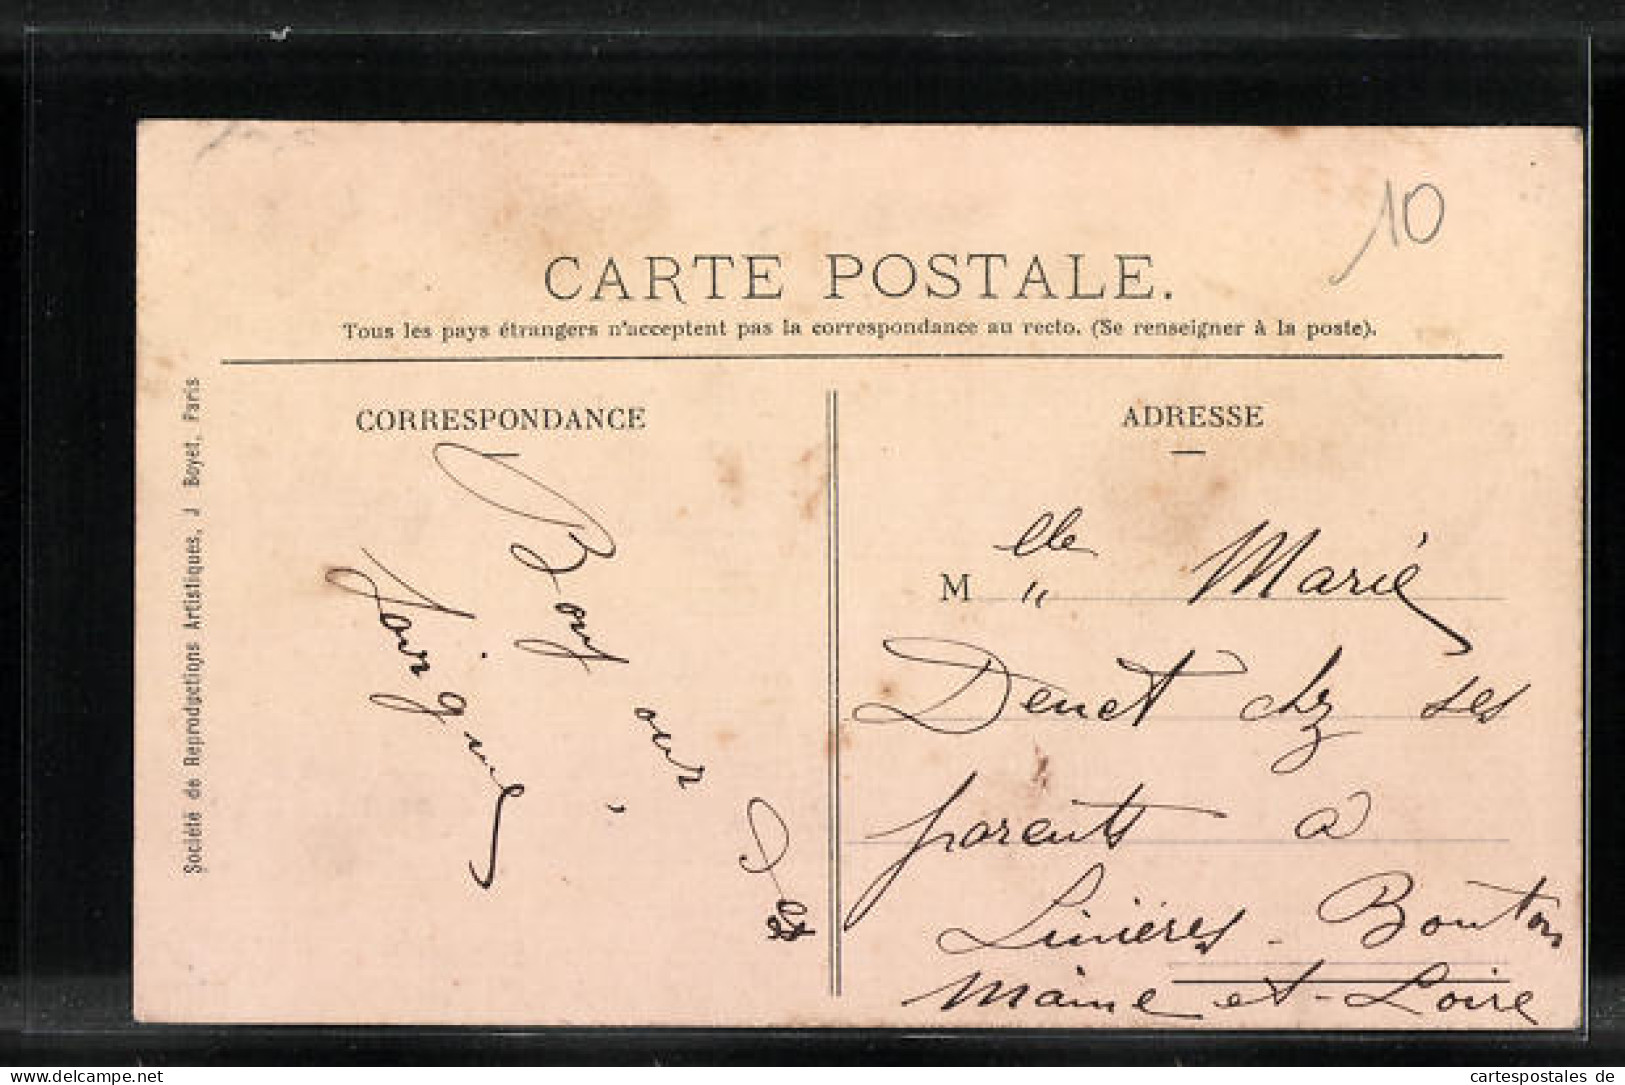 10
CARTE POSTALE.
Tous les pays étrangers n'acceptent pas la correspondance au recto. (Se renseigner à la poste).
CORRESPONDANCE
Bonjour
Société de Reproductions Artistiques, J Boyet, Paris
ADRESSE
Mlle Marie
Denet chz ses
parents a
Linières-Bouton
Maine et-Loire
delcampe.net
cartespostales de